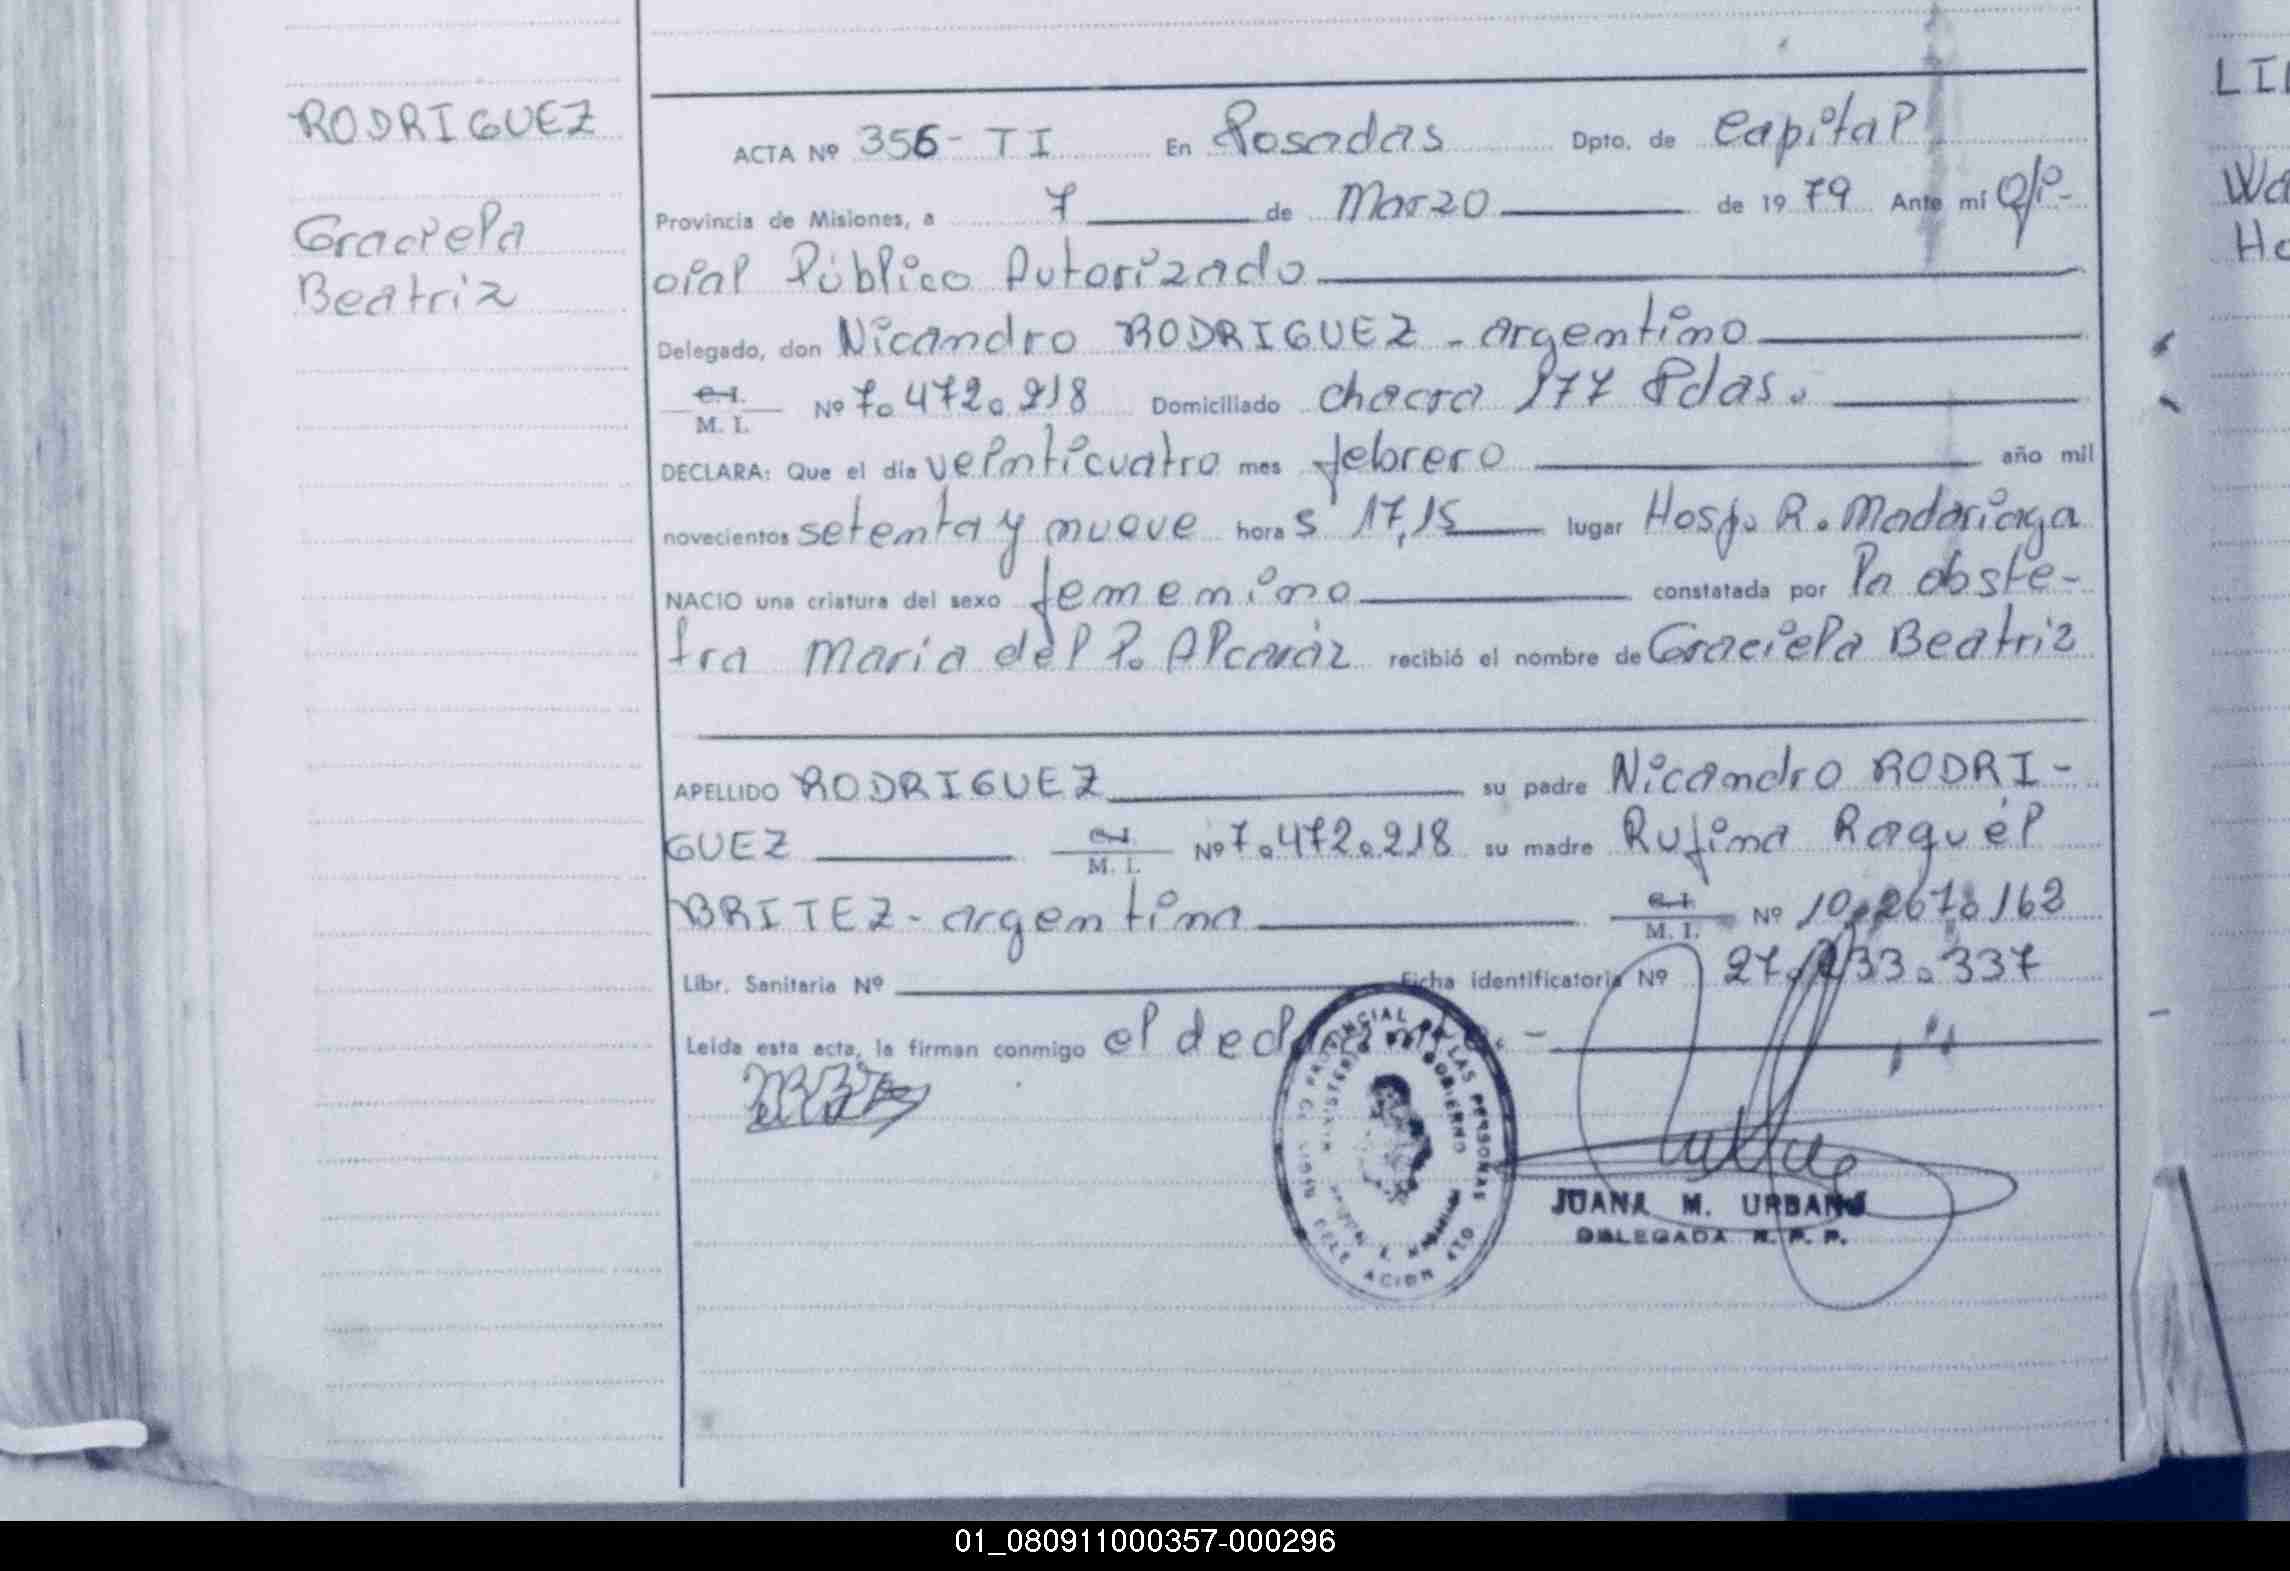 RODRIGUEZ
Graciela
Beatriz
ACTA Nº 356- TI En Posadas Dpto. de Capital
Provincia de Misiones, a 7 de Marzo de 1979 Ante mí Ofi-
cial Público Autorizado
Delegado, don Nicandro RODRIGUEZ - argentino
C.I. M. I. Nº 7.472.218 Domiciliado chacra 177 Pdas.
DECLARA: Que el día veinticuatro mes febrero año mil
novecientos setenta y nueve hora s 17,15 lugar Hosp. R. Madariaga
NACIO una criatura del sexo femenino constatada por la obste-
tra María del P. Alcaráz recibió el nombre de Graciela Beatriz
APELLIDO RODRIGUEZ su padre Nicandro RODRI-
GUEZ C.I. M. I. Nº 7.472.218 su madre Rufina Raquél
BRITEZ - argentina C.I. M. I. Nº 10.267.162
Libr. Sanitaria Nº Ficha identificatoria Nº 27.233.337
Leída esta acta, la firman conmigo el declarante.-
PROVINCIAL DE LAS PERSONAS
MINISTERIO DE GOBIERNO
JUANA M. URBANO
DELEGADA R. P. P.
LI
Wa
He
01_080911000357-000296